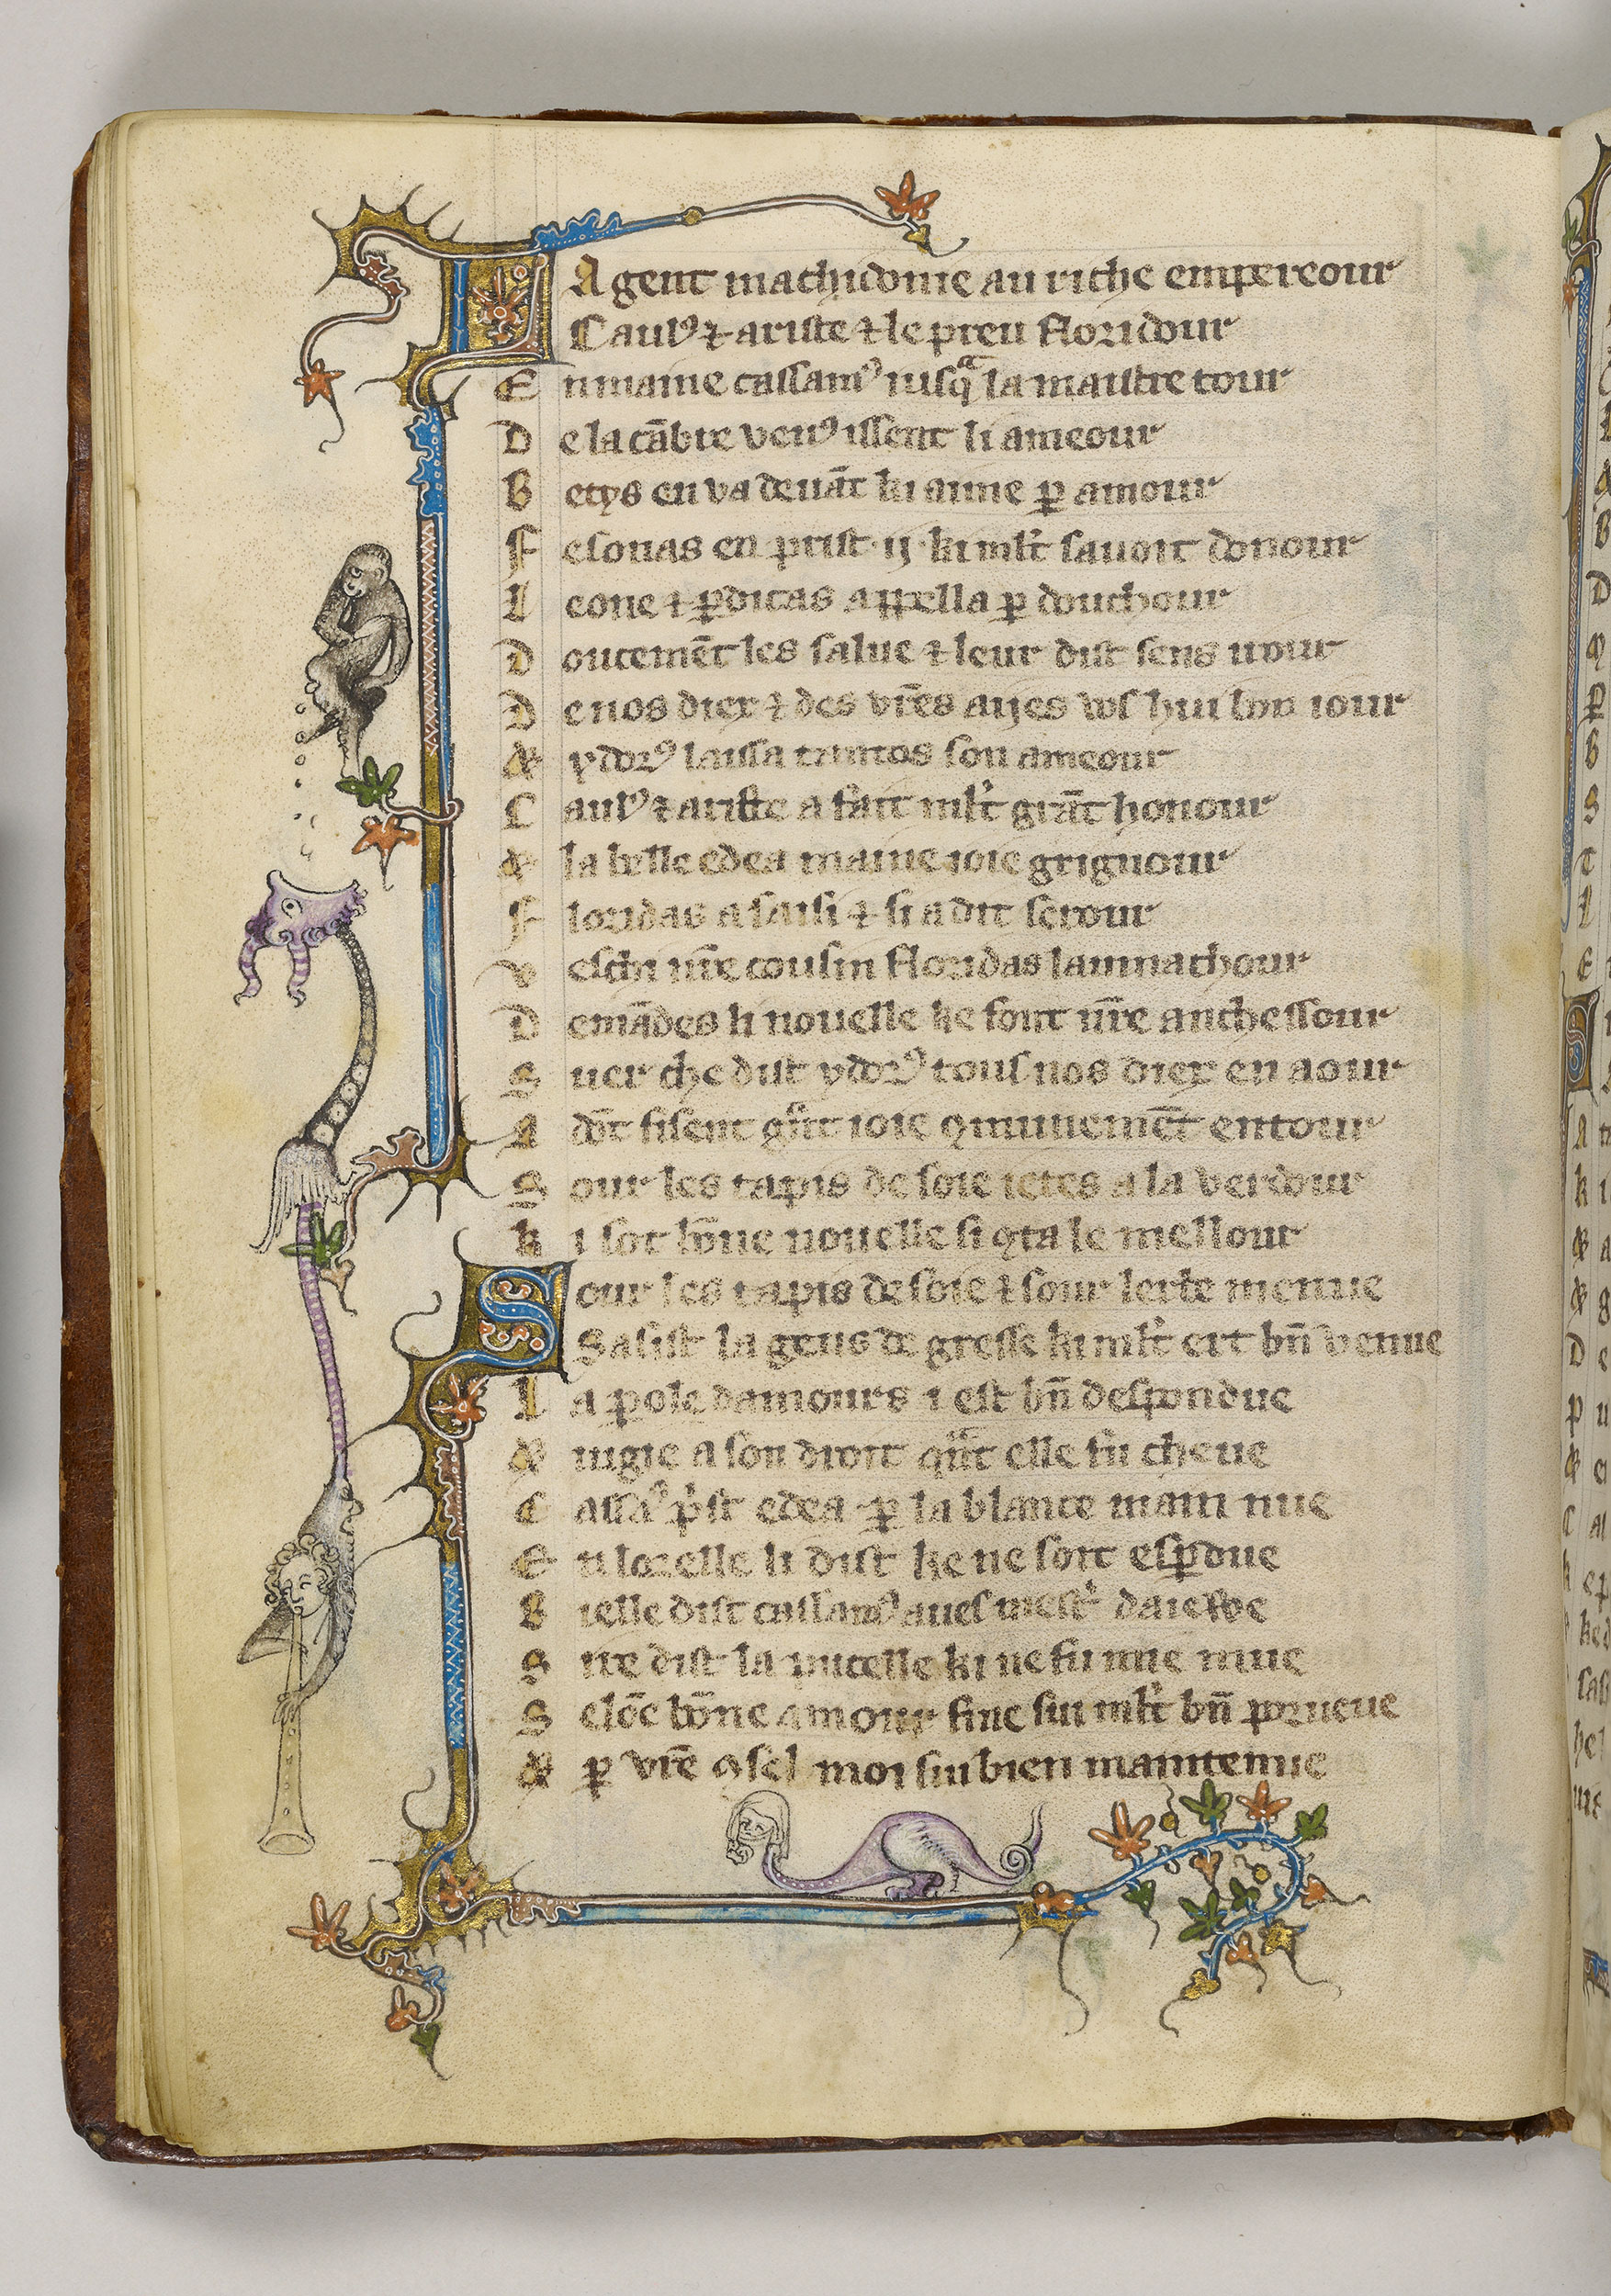 LA gent machidonie au riche empereour
Caulꝰ ⁊ ariste ⁊ le preu floridour
En maine cassamꝰ iusqᵃ la maistre tour
De la cābre venꝰ issent li ameour
Betys en va deuāt ki aime ꝑ amour
Felonas en prist ij ki ml't sauoit donour
Leone ⁊ ꝑdicas appella ꝑ douchour
Doucemēt les salue ⁊ leur dist sens irour
De nos diex ⁊ des vr̄es aijes vos hui bon iour
& ydorꝰ laissa tantos son ameour
Caulꝰ ⁊ ariste a fait ml't grāt honour
& la belle edea maine ioie grignour
Floridas a saisi ⁊ si a dit serour
Veschi nr̄e cousin floridas laumachour
Demādes li nouelle ke font nr̄e anchessour
Suer che dist ydorꝰ tous nos diex en aour
A dōt fisent gᵃnt ioie ꝯmunemēt entour
Sour les tapis de soie ietes a la verdour
Ki sot bōne nouelle si ꝯta le mellour
Sour les tapis de soie ⁊ sour lerbe menue
Sasist la gens de gresse ki ml't ert bn̄ venue
La ꝑole damours i est bn̄ despondue
& iugie a son droit qᵃnt elle fu cheue
Cassāꝰ pⁱst edea ꝑ la blance main nue
En lorelle li dist ke ne soit esꝑdue
Bielle dist cassamꝰ aues mestⁱ daieuwe
Sire dist la pucelle ki ne fu mie mue
Selōc bōne amour fine sui ml't bn̄ porueue
& ꝑ vr̄e ꝯsel moi sui bien maintenue